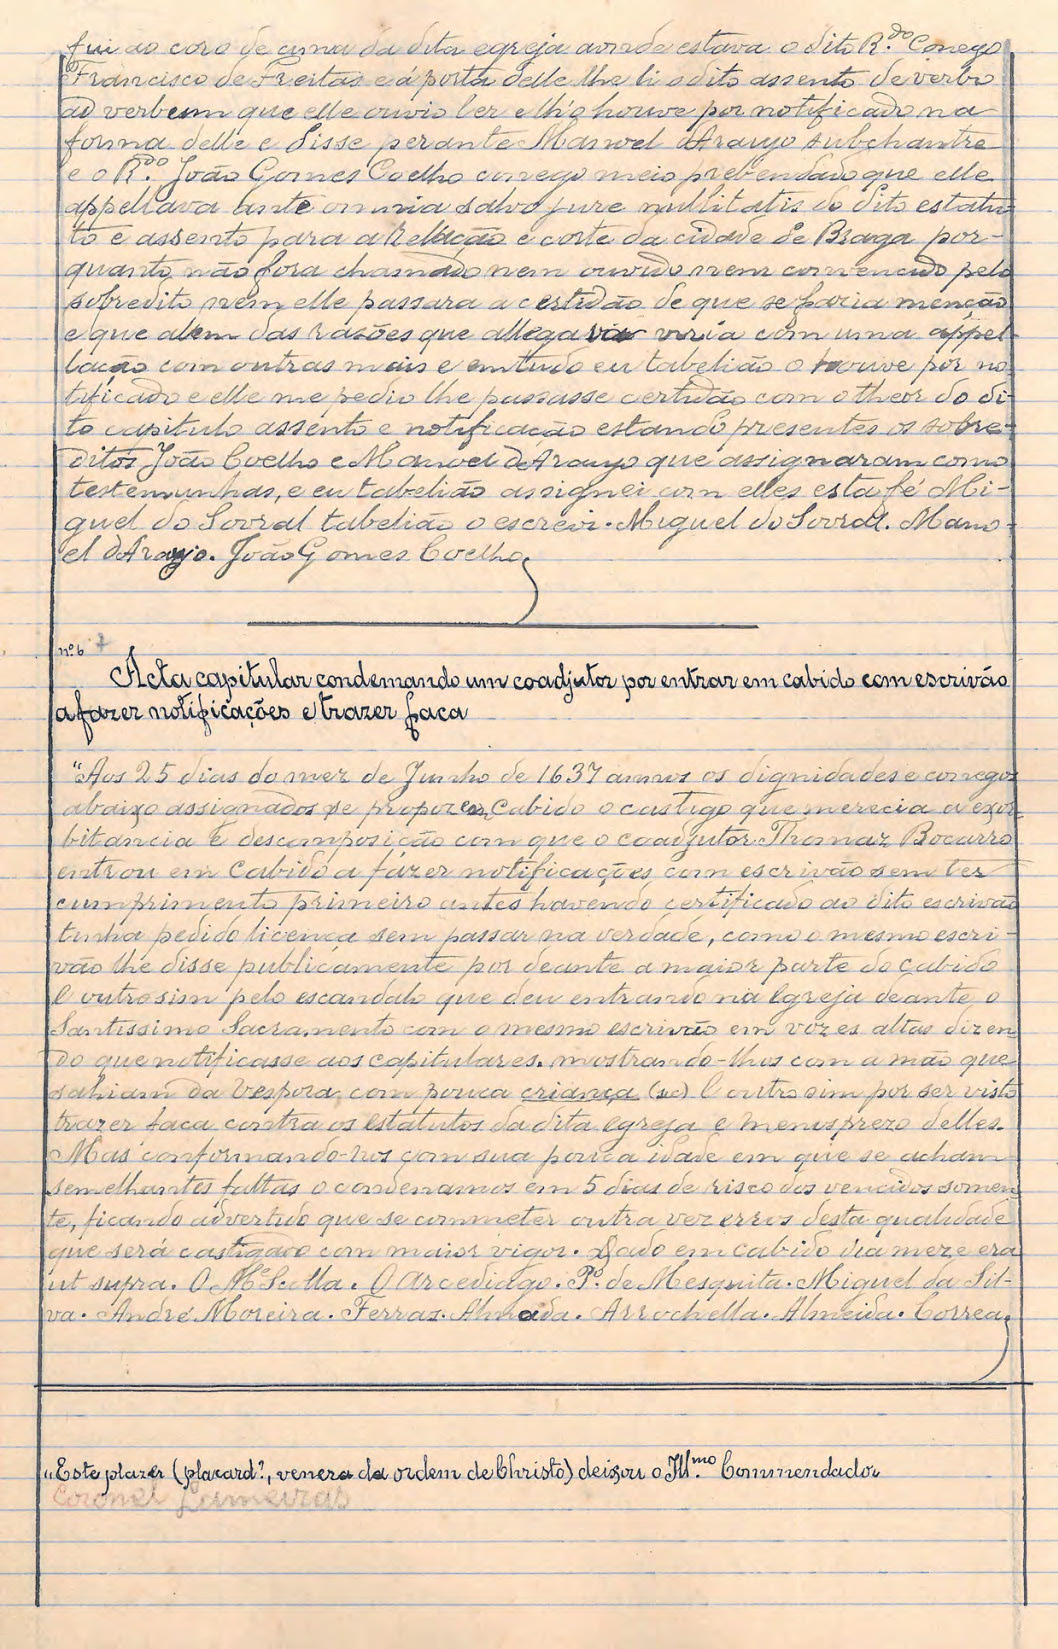 fui ao coro de cima da dita egreja aonde estava o dito R.do Conego
Francisco de Freitas e á porta delle lhe li o dito assento de verbo
ad verbum que elle ouvio ler e lh'o houve por notificado na
forma delle e disse perante Manoel d'Araujo subchantre
e o R.do João Gomes Coelho conego meio prebendado que elle
appellava ante omnia salvo jure nullitatis do dito estatu
to e assento para a Relação e corte da cidade de Braga por-
quanto não fora chamado nem ouvido nem convencido pelo
sobredito nem elle passara a certidão de que se fazia menção
e que alem das rasões que allegava viria com uma appel-
lação com outras mais e em tudo eu tabelião o houve por no
tificado e elle me pedio lhe passasse certidão com o theor do di-
to capitulo assento e notificação estando presentes os sobre-
ditos João Coelho e Manoel d'Araujo que assignaram como
testemunhas, e eu tabelião assignei com elles esta fé Mi-
guel do Sovral tabelião o escrevi. Miguel do Sovral. Mano-
el d'Araujo. João Gomes Coelho
nº 6 7
Acta capitular condemnando um coadjutor por entrar em cabido com escrivão
a fazer notificações e trazer faca
"Aos 25 dias do mez de Junho de 1637 annos os dignidades e conegos
abaixo assignados se propoz em Cabido o castigo que merecia a exor
bitancia e descomposição com que o coadjutor Thomaz Bocarro
entrou em Cabido a fazer notificações com escrivão sem ter
cumprimento primeiro antes havendo certificado ao dito escrivão
tinha pedido licença sem passar na verdade, como o mesmo escri-
vão lhe disse publicamente por deante a maior parte do cabido
e outrosim pelo escandalo que deu entrando na Egreja deante o
Santissimo Sacramento com o mesmo escrivão em vozes altas dizen
do que notificasse aos capitulares, mostrando-lhos com a mão que
sahiam da Vespora, com pouca criança (sic) e outrosim por ser visto
trazer faca contra os estatutos da dita egreja e menosprezo delles.
Mas conformando-nos com sua pouca idade em que se acham
semelhantes faltas o condenamos em 5 dias de risco dos vencidos somen
te, ficando advertido que se commeter outra vez erros desta qualidade
que será castigado com maior vigor. Dado em cabido dia mez e era
ut supra. O Me Sulla. O Arcediago. P.º de Mesquita. Miguel da Sil-
va. André Moreira. Ferras. Almada. Arrochella. Almeida. Correa
"Este plazer (placard?, venera da ordem de Christo) deixou o Ill.mo Commendador
Coronel Lameiras